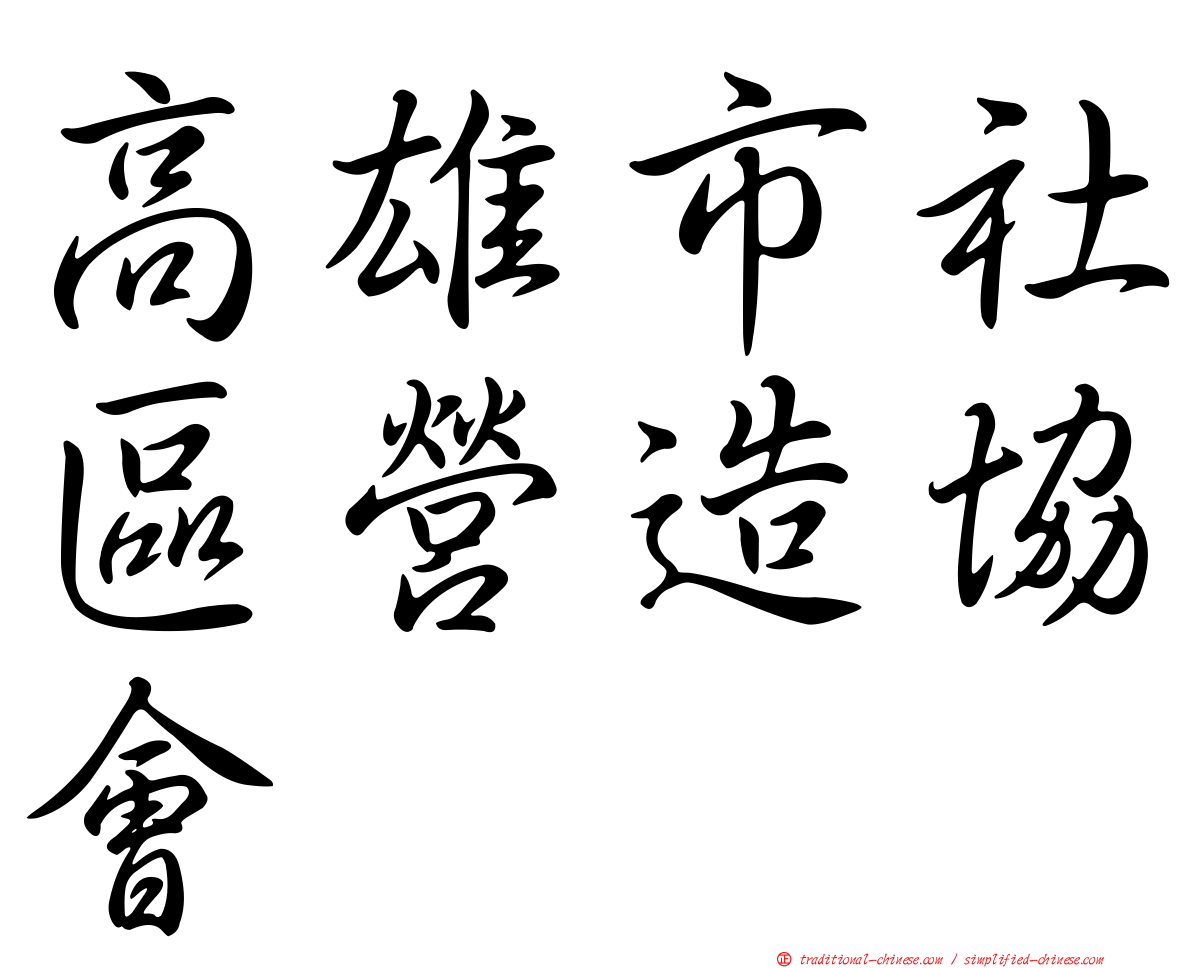 高雄市社
區營造協
會
正 traditional-chinese.com / simplified-chinese.com